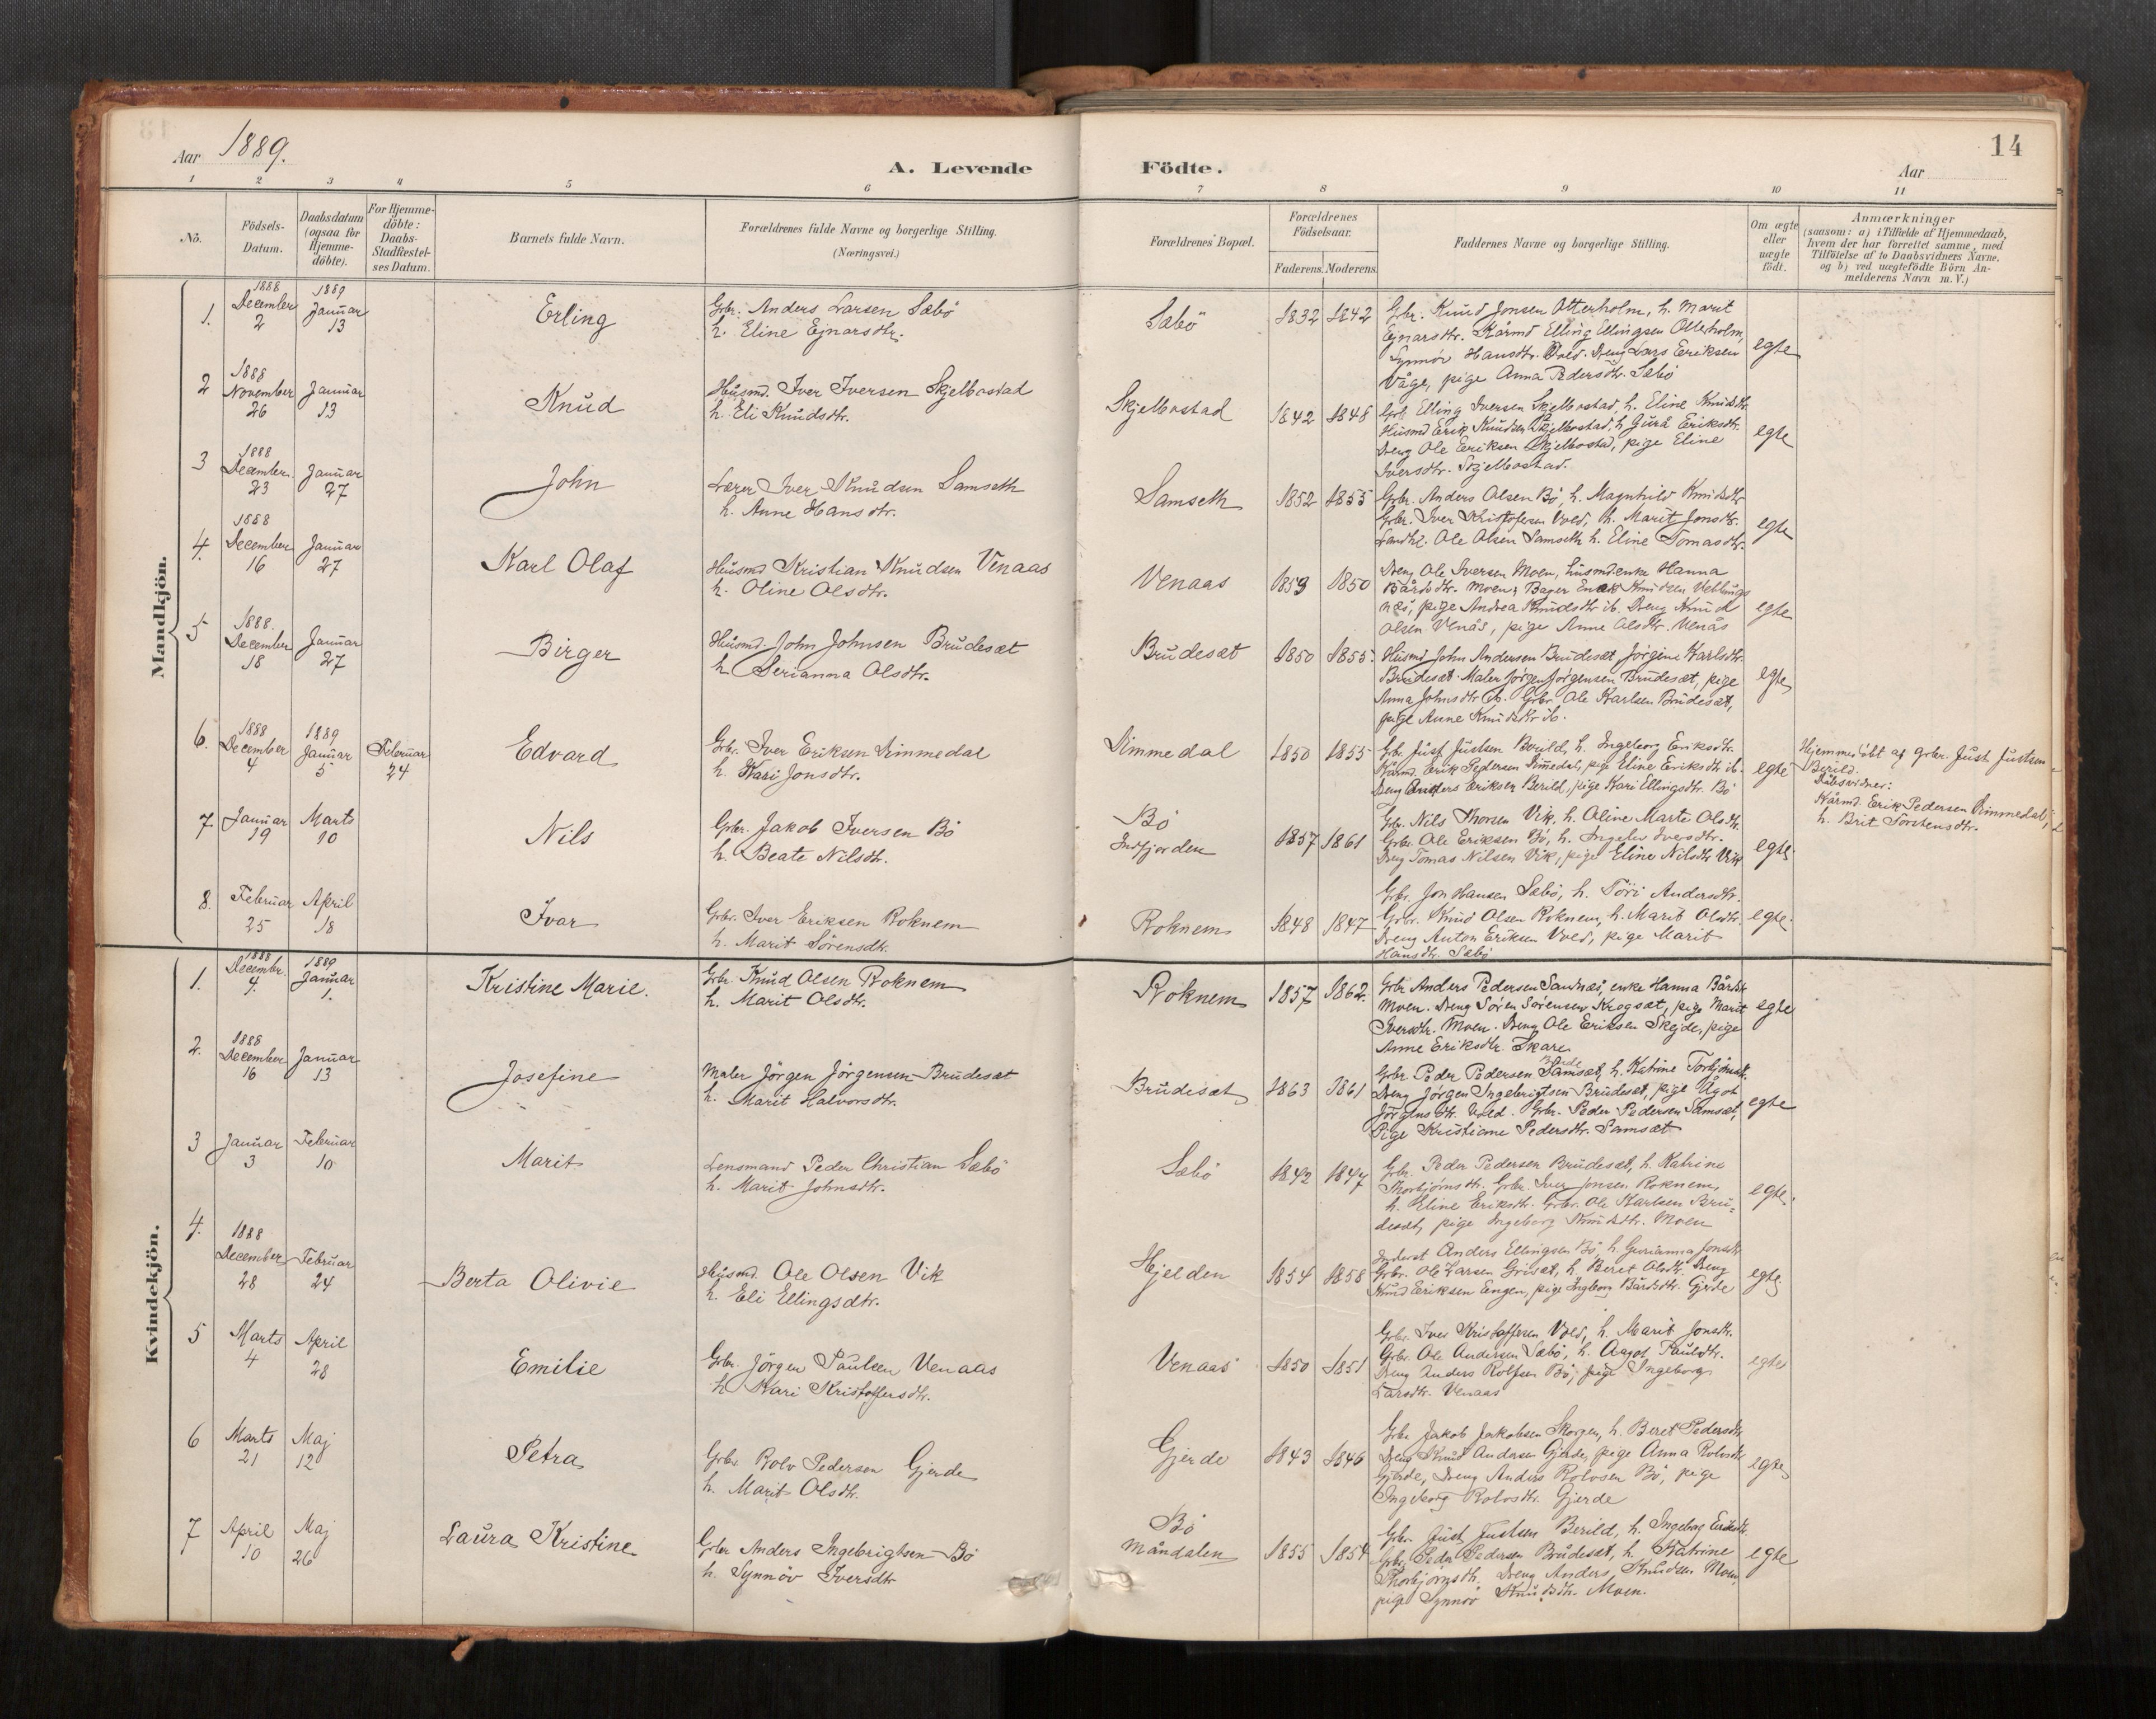 Aar 1889.
A. Levende Födte.
Aar
14
1 2 3 4 5 6 7 8 9 10 11
No.
Födsels-
Datum.
Daabsdatum
(ogsaa for
Hjemme-
döbte).
For Hjemme-
döbte:
Daabs-
Stadfæstel-
ses Datum.
Barnets fulde Navn.
Forældrenes fulde Navne og borgerlige Stilling.
(Næringsvei.)
Forældrenes Bopæl.
Forældrenes
Födselsaar.
Faderens. Moderens.
Faddernes Navne og borgerlige Stilling.
Om ægte
eller
uægte
födt.
Anmærkninger
(saasom: a) i Tilfælde af Hjemmedaab,
hvem der har forrettet samme, med
Tilföielse af to Daabsvidners Navne,
og b) ved uægtefödte Börn An-
melderens Navn m. V.)
Mandkjön.
1. 1888 December 2
1889 Januar 13
Erling
Gbr. Anders Larsen Sæbö
h. Eline Ejnarsdtr.
Sæbö
1832 1842
Gbr. Knud Jonsen Otterholm, h. Marit
Ejnarsdtr. Kårmd Elling Ellingsen Otterholm,
Synnöv Hansdtr. Vold. Dreng Lars Eriksen
Våge, pige Anna Pedersdtr. Sæbö
egte
2 1888 November 26
Januar 13
Knud
Husmd. Iver Iversen Skjelbostad
h. Eli Knudsdtr.
Skjelbostad
1842 1848
Gbr. Elling Iversen Skjelbostad, h. Eline Knudsdtr.
Husmd Erik Knudsen Skjelbostad, h Gurå Eriksdtr.
Dreng Ole Eriksen Skjelbostad, pige Eline
Iversdtr. Skjelbostad.
egte
3 1888 December 23
Januar 27
John
Lærer Iver Knudsen Samseth
h. Anne Hansdtr.
Samseth
1852 1855
Gbr. Anders Olsen Bö, h. Magnhild Knudsdtr
Gbr. Iver Kristofersen Vold, h. Marit Jonsdtr.
Landhl. Ole Olsen Samseth h. Eline Tomasdtr.
egte
4. 1888 December 16
Januar 27
Karl Olaf
Husmd Kristian Knudsen Venaas
h. Oline Olsdtr.
Venaas
1859 1850
Dreng Ole Iversen Moen, husmd.enke Hanna
Bårdsdtr. Moen, Bager Knudsen Veblungs
næs, pige Andrea Knudsdtr ib. Dreng Knud
Olsen Venås, pige Anne Olsdtr. Venås
egte
5 1888. December 18
Januar 27
Birger
Husmd. John Johnsen Brudesæt
h Serianna Olsdtr.
Brudesæt
1850 1855.
Husmd John Andersen Brudesæt, Jörgine Karlsdtr.
Brudesæt. Maler Jörgen Jörgensen Brudesæt, pige
Anna Johnsdtr ib. Gbr. Ole Karlsen Brudesæt,
pige Anne Knudsdtr ib.
egte
6. 1888 December 4
1889 Januar 5
Februar 24
Edvard
Gbr. Iver Eriksen Dimmedal
h. Kari Jonsdtr.
Dimmedal
1850 1855
Gbr. Just Justsen Berild, h. Ingeborg Eriksdtr.
Kårmd. Erik Pedersen Dimmedal, pige Eline Eriksdtr ib.
Dreng Anders Eriksen Berild, pige Kari Ellingsdtr. Bö
egte
Hjemmedöbt af gbr. Just Justsen
Berild.
Dåbsvidner:
Kårmd. Erik Pedersen Dimmedal,
h. Brit Torstensdtr.
7 Januar 19
Marts 10
Nils
Gbr. Jakob Iversen Bö
h. Beate Nilsdtr.
Bö
Indfjorden
1857 1861
Gbr. Nils Thorsen Vik, h. Oline Marta Olsdtr.
Gbr. Ole Eriksen Bö, h. Ingeborg Iversdtr.
Dreng Tomas Nilsen Vik, pige Eline Nilsdtr Vik
egte
8. Februar 25
April 18
Ivar
Gbr. Iver Eriksen Roknem
h. Marit Sörensdtr.
Roknem
1848 1847
Gbr. Jon Hansen Sæbö, h. Töri Andersdtr.
Gbr. Knud Olsen Roknem, h. Marit Olsdtr.
Dreng Anton Eriksen Vold, pige Marit
Hansdtr. Sæbö
egte.
Kvindekjön.
1. 1888 December 4.
1889 Januar 1.
Kristine Marie.
Gbr. Knud Olsen Roknem
h. Marit Olsdtr.
Roknem
1857 1862.
Gbr Anders Pedersen Sandnæs, enke Hanna Bårdsdtr
Moen. Dreng Sören Sörensen Krogsæt, pige Marit
Iversdtr. Moen. Dreng Ole Eriksen Skejde, pige
Anne Eriksdtr. Skare
egte
2. 1888 December 16
Januar 13
Josefine
Maler Jörgen Jörgensen Brudesæt
h. Marit Halvorsdtr.
Brudesæt
1863 1861
Gbr Peder Pedersen Samsæt, h. Katrine Torbjörnsdtr.
Dreng Jörgen Ingebrigtsen Brudesæt, pige Ågot
Jörgensdtr. Vold. Gbr. Peder Pedersen Samsæt,
Pige Kristiane Pedersdtr. Samsæt
egte
3 Januar 3
Februar 10
Marit
Lensmand Peder Christian Sæbö
h. Marit Johnsdtr.
Sæbö
1842 1847
Gbr. Peder Pedersen Brudesæt, h. Katrine
Thorbjörnsdtr. Gbr. Iver Jonsen Roknem,
h. Eline Eriksdtr. Gbr. Ole Karlsen Bru-
desæt, pige Ingeborg Knudsdtr. Moen
egte.
4. 1888 December 28
Februar 24
Berta Olivie
Husmd. Ole Olsen Vik
h. Eli Ellingsdtr.
Hjelden
1854 1858
Inderst Anders Ellingsen Bö, h. Gurianna Jonsdtr
Gbr. Ole Larsen Grisæt, h. Beret Olsdtr. Dreng
Knud Eriksen Engen, pige Ingeborg Bårdsdtr. Gjerde
egte
5 Marts 4
April 28
Emilie
Gbr. Jörgen Paulsen Venaas
h Kari Kristoffersdtr.
Venaas
1850 1851
Gbr. Iver Kristoffersen Vold, h. Marit Jonsdtr.
Gbr. Ole Andersen Sæbö, h. Aagot Paulsdtr.
Dreng Anders Rolfsen Bö, pige Ingeborg
Larsdtr. Venaas
egte
6 Marts 21
Maj 12
Petra
Gbr Rolv Pedersen Gjerde
h. Marit Olsdtr.
Gjerde
1843 1846
Gbr Jakob Jakobsen Skorgen, h. Beret Pedersdtr
Dreng Knud Andersen Gjerde, pige Anna Rolvsdtr
Gjerde, Dreng Anders Rolvsen Bö, pige
Ingeborg Rolvsdtr. Gjerde
egte
7 April 10
Maj 26
Laura Kristine
Gbr Anders Ingebrigtsen Bö
h. Synnöv Iversdtr
Bö
Måndalen
1855 1854
Gbr. Just Justsen Berild, h. Ingebrg Eriksdtr.
Gbr. Peder Pedersen Brudesæt, h. Katrine
Thorbjörnsdtr. Dreng Anders Knudsen Moen,
pige Synnöv Knudsdtr. Moen.
egte